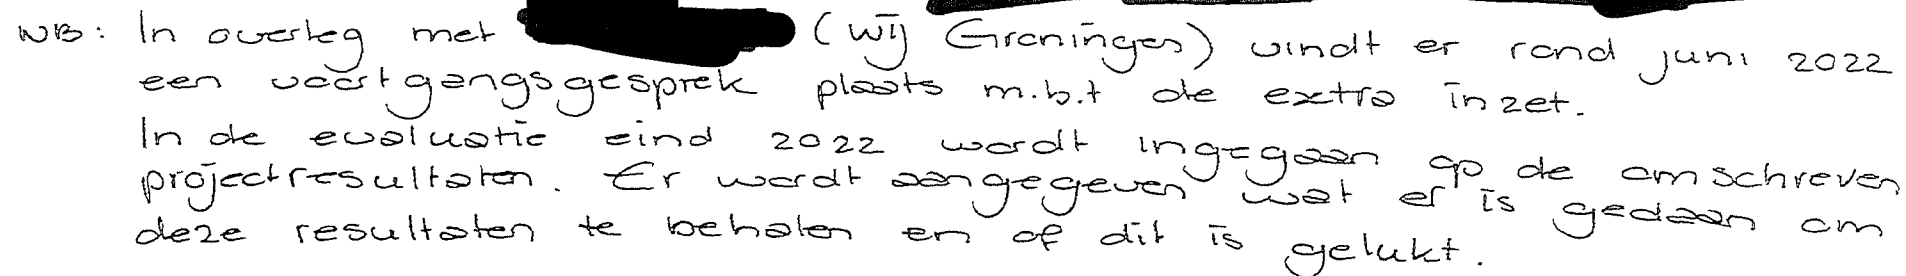 NB: In overleg met (Wij Groningen) vindt er rond juni 2022
een voortgangsgesprek plaats m.b.t de extra inzet.
In de evaluatie eind 2022 wordt ingegaan op de omschreven
projectresultaten. Er wordt aangegeven wat er is gedaan om
deze resultaten te behalen en of dit is gelukt.